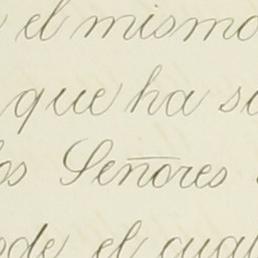 el mismo
que ha
Señores
el cual